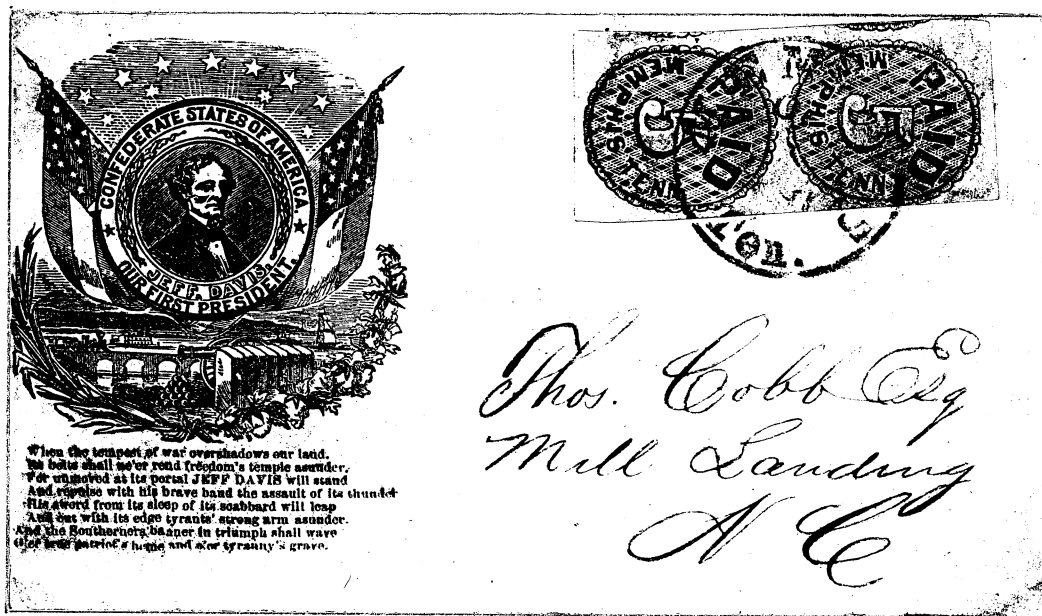 CONFEDERATE STATES OF AMERICA.
JEFF. DAVIS.
OUR FIRST PRESIDENT.
When the tempest of war overshadows our land.
Its bolts shall ne'er rend freedom's temple asunder.
For unmoved at its portal JEFF DAVIS will stand
And repulse with his brave band the assault of its thunder
His sword from its sleep of its scabbard will leap
And cut with its edge tyrants' strong arm asunder.
And the Southerners banner in triumph shall wave
O'er patriot's home and o'er tyranny's grave.
PAID
5
MEMPHIS
TENN
PAID
5
MEMPHIS
TENN
Thos. Cobb Esq
Mill Landing
N C